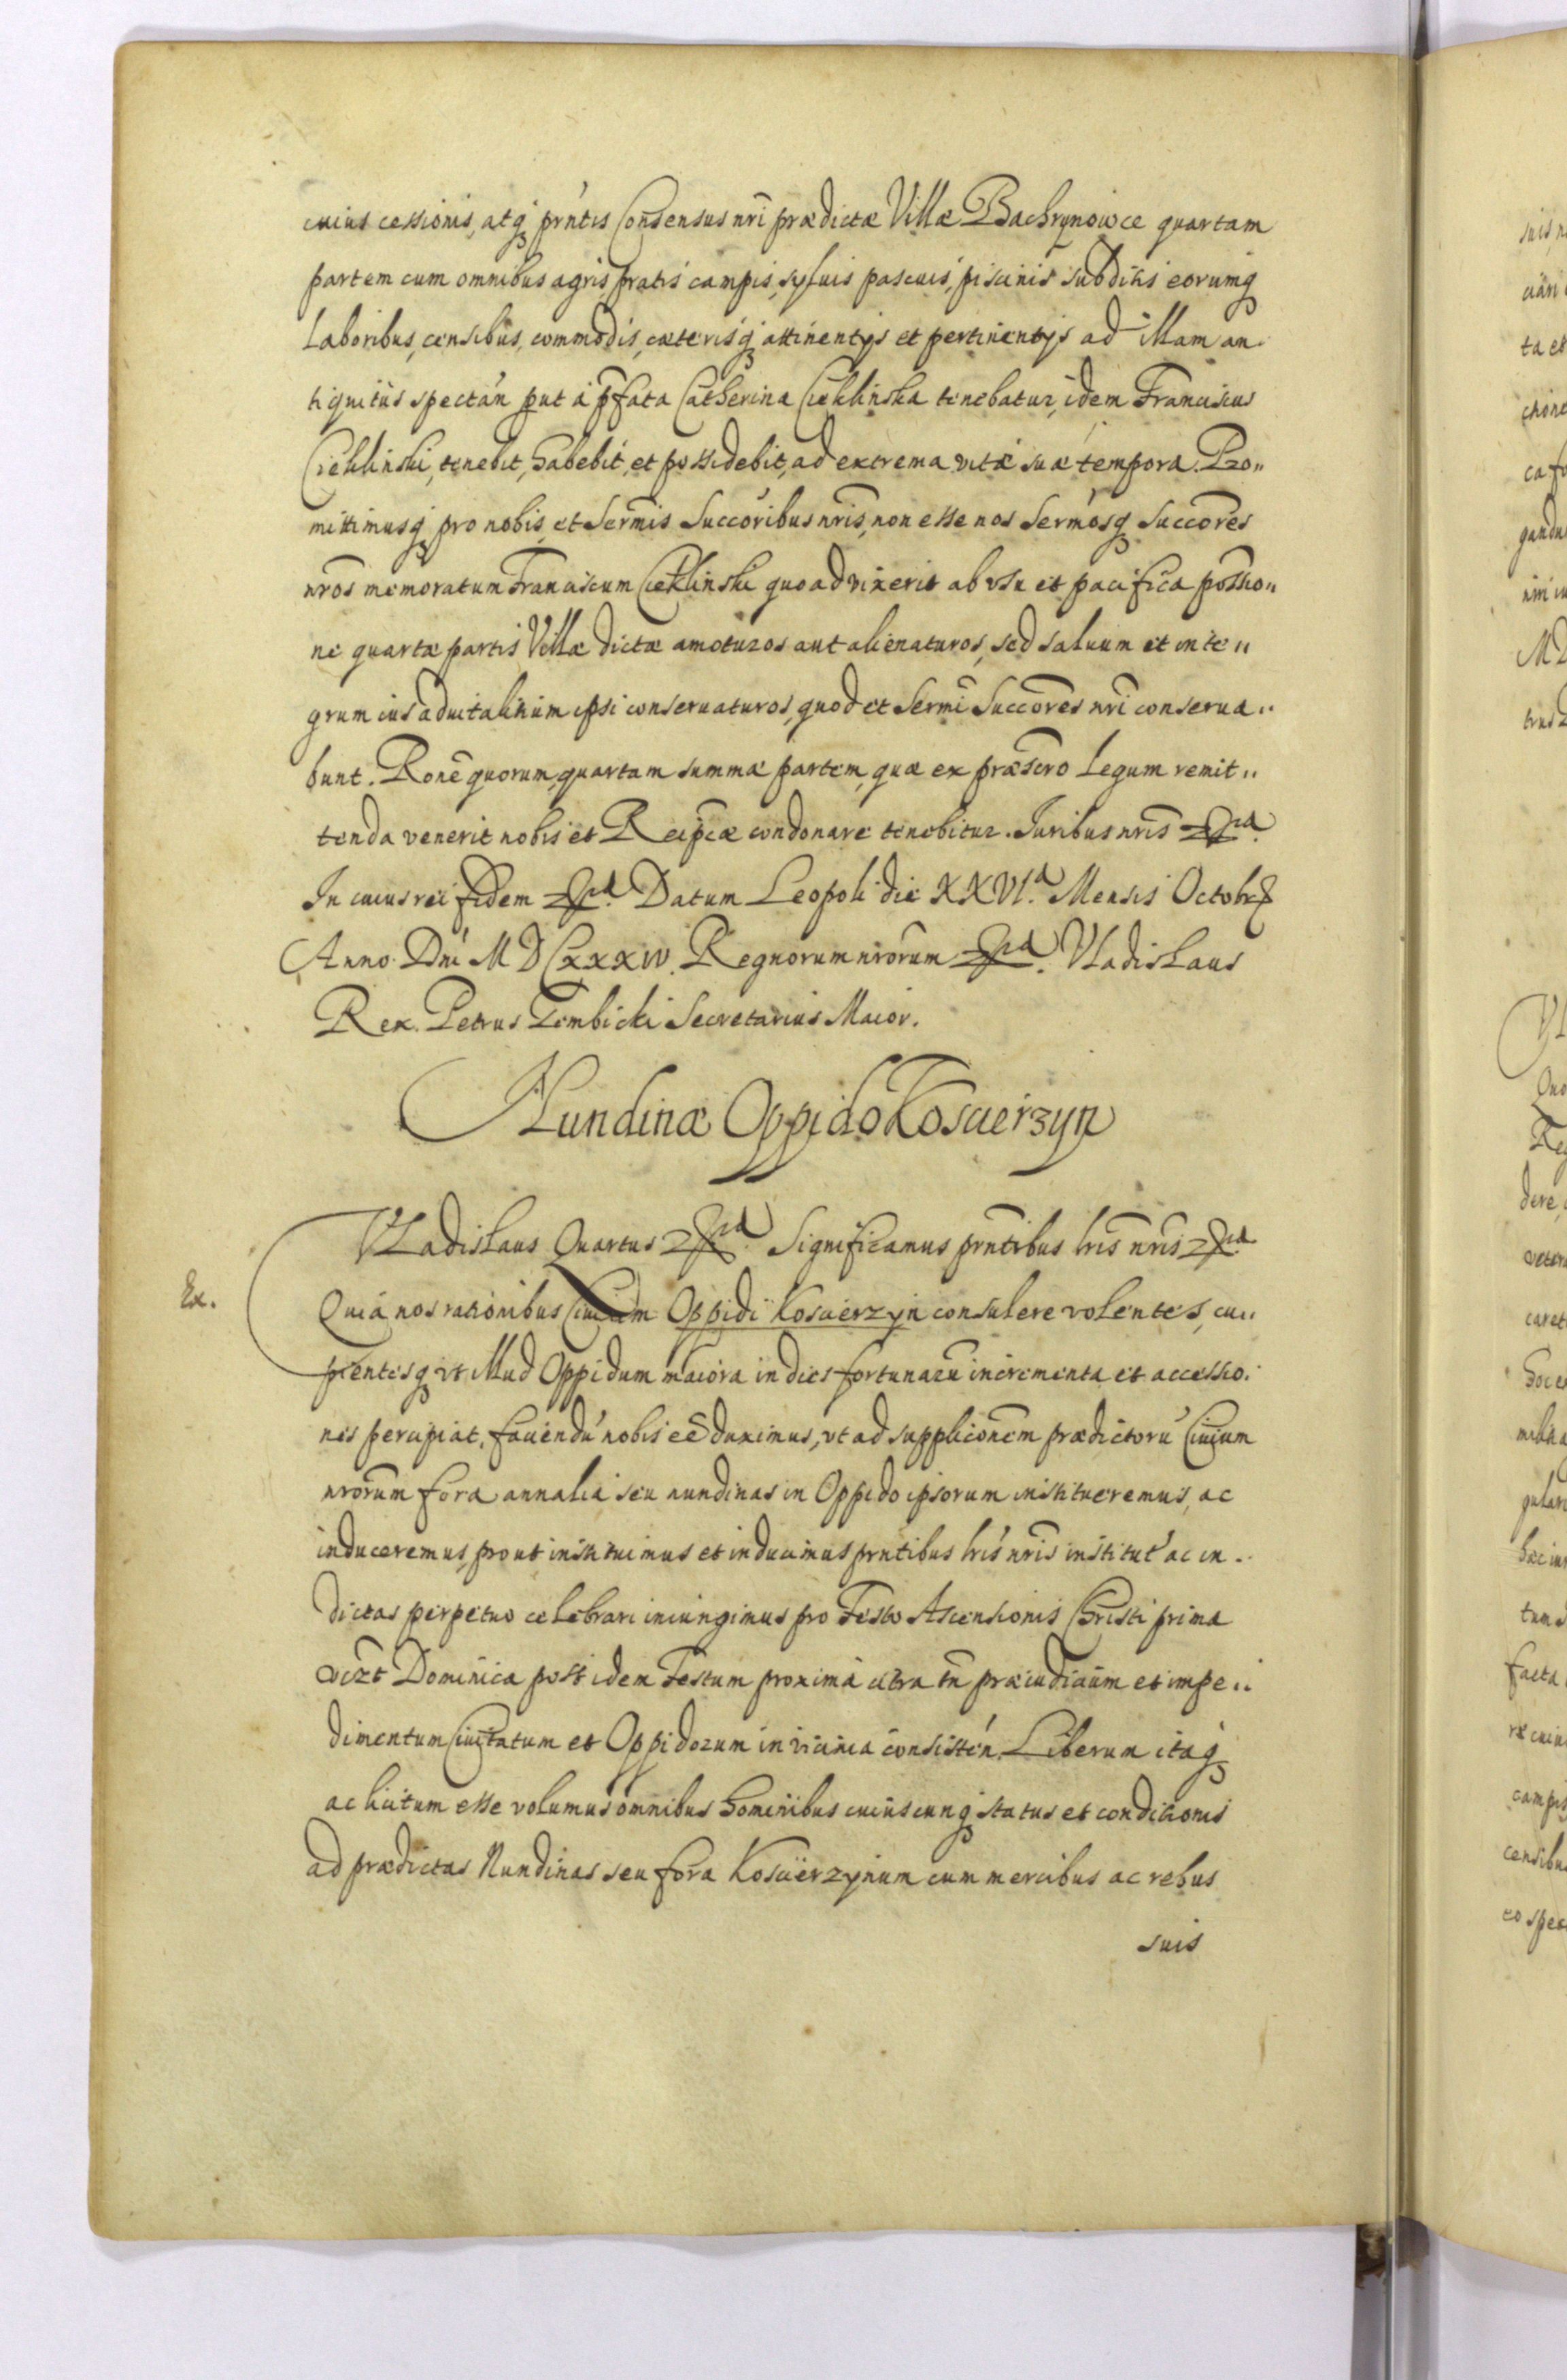 cuius cessionis, atq3 prñtis Consensus nr̃i prædictæ Villæ Bachrynowce quartam
partem cum omnibus agris, pratis campis, syluis pascuis, piscinis subditis eorumq3
Laboribus, censibus, commodis, cæterisq3 attinentijs et pertinentijs ad illam an-
tiquitus spectań put à p̃fata Catherina Cieklinska tenebatur, idem Franciscus
Cieklinski, tenebit, habebit, et possidebit, ad extrema vitæ suæ tempora. Pro„
mittimusq3 pro nobis, et Serm̃is Succõribus nr̃is, non esse nos Serm̃osq3 Succõres
nr̃os memoratum Franciscum Cieklinski quoad vixerit ab vsu et pacifica posśio„
ne quartæ partis Villæ dictæ amoturos aut alienaturos, sed saluum et inte„
grum ius aduitalitium ipsi conseruaturos, quod et Serm̃i Succõres nr̃i conserua„
bunt. Rõne quorum, quartam summæ partem, quæ ex præscro Legum remit„
tenda venerit nobis et Reip̃cæ condonare tenebitur. Iuribus nr̃is &ra.
In cuius rei fidem &ra. Datum Leopoli die XXVI.a Mensis Octobr
Anno Dni MDCXXXIV. Regnorum nrõrum &ra. Vladislaus
Rex. Petrus Gembicki Secretarius Maior.
Nundinæ Oppido Koscierzyn
Vladislaus Quartus &ra. Significamus prñtibus lr̃is nr̃is &ra.
Ex.
Quia nos rationibus Ciuium Oppidi Koscierzyn consulere volentes, cu„
pientesq3 vt illud Oppidum maiora in dies fortunarũ incrementa et accessio-
nes percipiat, fauendũ nobis eẽ duximus, vt ad supplicõnem prædictorũ Ciuium
nrõrum fora annalia seu nundinas in Oppido ipsorum institueremus, ac
induceremus, prout instituimus et inducimus prñtibus lr̃is nr̃is institut̃ ac in-
dictas perpetuo celebrari iniungimus pro Festo Ascensionis Christi prima
vizt Dominica post idem Festum proxima citra tñ præiudicium et impe„
dimentum Ciuitatum et Oppidorum in vicinia consisteń. Liberum itaq3
ac licitum esse volumus omnibus hominibus cuiuscunq3 status et conditionis
ad prædictas Nundinas seu fora Koscierzynum cum mercibus ac rebus
suis